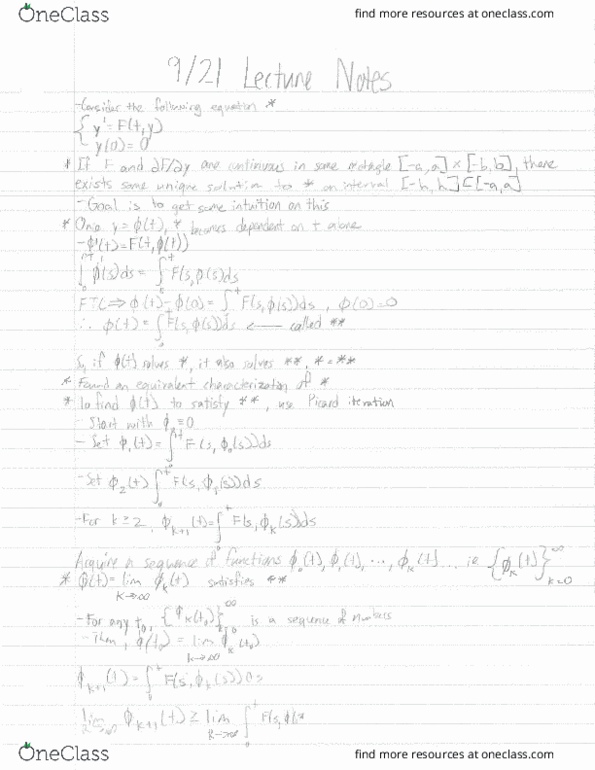 OneClass
find more resources at oneclass.com
9/21 Lecture Notes
-Consider the following equation *
{ y' = F(t,y)
y(0)=0
* If F and ∂F/∂y are continuous in some rectangle [-a,a] × [-b,b], there
exists some unique solution to * on interval [-h,h]⊆[-a,a]
-Goal is to get some intuition on this
* Once y=ϕ(t), * becomes dependent on t alone
-ϕ'(t)=F(t,ϕ(t))
∫₀ᵗ ϕ'(s)ds = ∫₀ᵗ F(s,ϕ(s)ds
FTC ⇒ ϕ(t)-ϕ(0) = ∫₀ᵗ F(s,ϕ(s))ds , ϕ(0)=0
∴ ϕ(t) = ∫₀ᵗ F(s,ϕ(s))ds ← called **
So, if ϕ(t) solves *, it also solves **, *=**
* Found an equivalent characterization of *
* To find ϕ(t) to satisfy **, use Picard iteration
- Start with ϕ₀≡0
- Set ϕ₁(t) = ∫₀ᵗ F(s,ϕ₀(s))ds
-Set ϕ₂(t) ∫₀ᵗ F(s,ϕ₁(s))ds
-For k≥2, ϕₖ₊₁(t)=∫₀ᵗ F(s,ϕₖ(s))ds
Acquire a sequence of functions ϕ₀(t), ϕ₁(t), ..., ϕₖ(t)... ie {ϕₖ(t)}∞ k=0
* ϕ(t)= lim k→∞ ϕₖ(t) satisfies **
-For any t₀, {ϕₖ(t₀)}∞ is a sequence of numbers
- ϕ(t₀) = lim k→∞ ϕₖ(t₀)
ϕₖ₊₁(t) = ∫₀ᵗ F(s,ϕₖ(s))
lim ϕₖ₊₁(t) ≥ lim k→∞ ∫₀ᵗ
OneClass
find more resources at oneclass.com